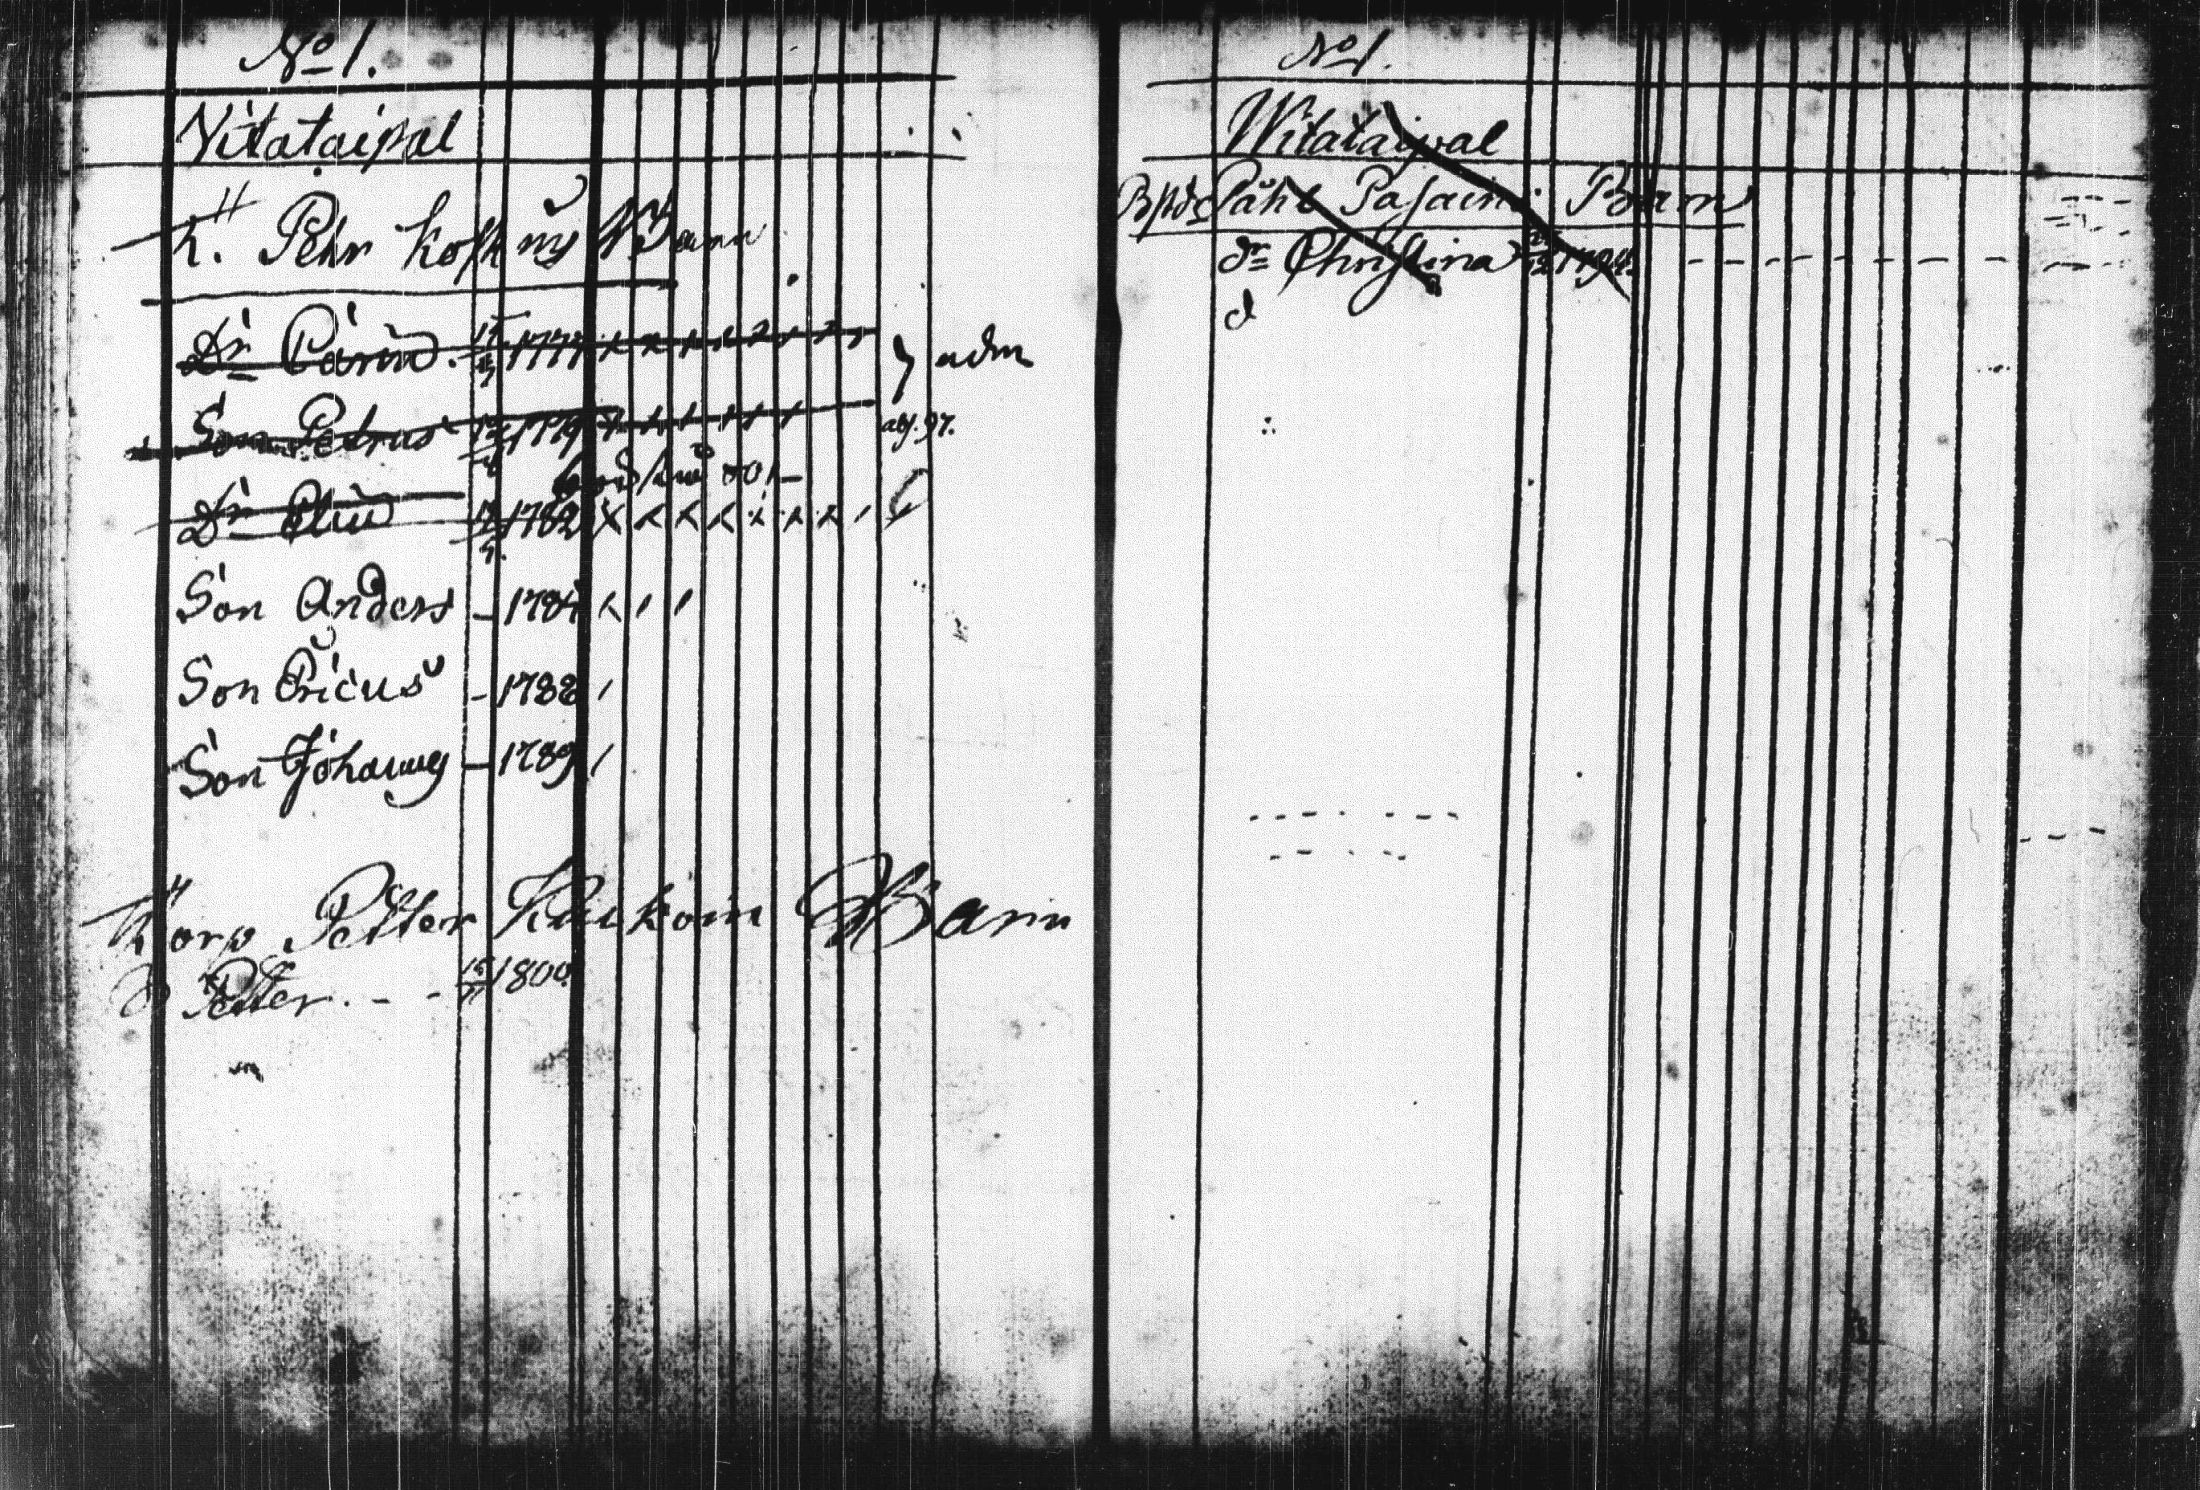 No 1.
Vitataipal
h. Pehr Barn
Dr Carin. 1777 x x x x x x adm
Son Petrus 1779 x x x x x x abf. 97.
Dr Elin 1782 x x x x x x x
Son Anders – 1784 x ı ı
Son Ericus – 1788 ı
Son Johannes – 1789 ı
Korp Petter Kaukoin Barn
S Petter. - - 1800.
No 1.
Witataipal
Påhl Pasain: Barn
dr Christina 1794.
d